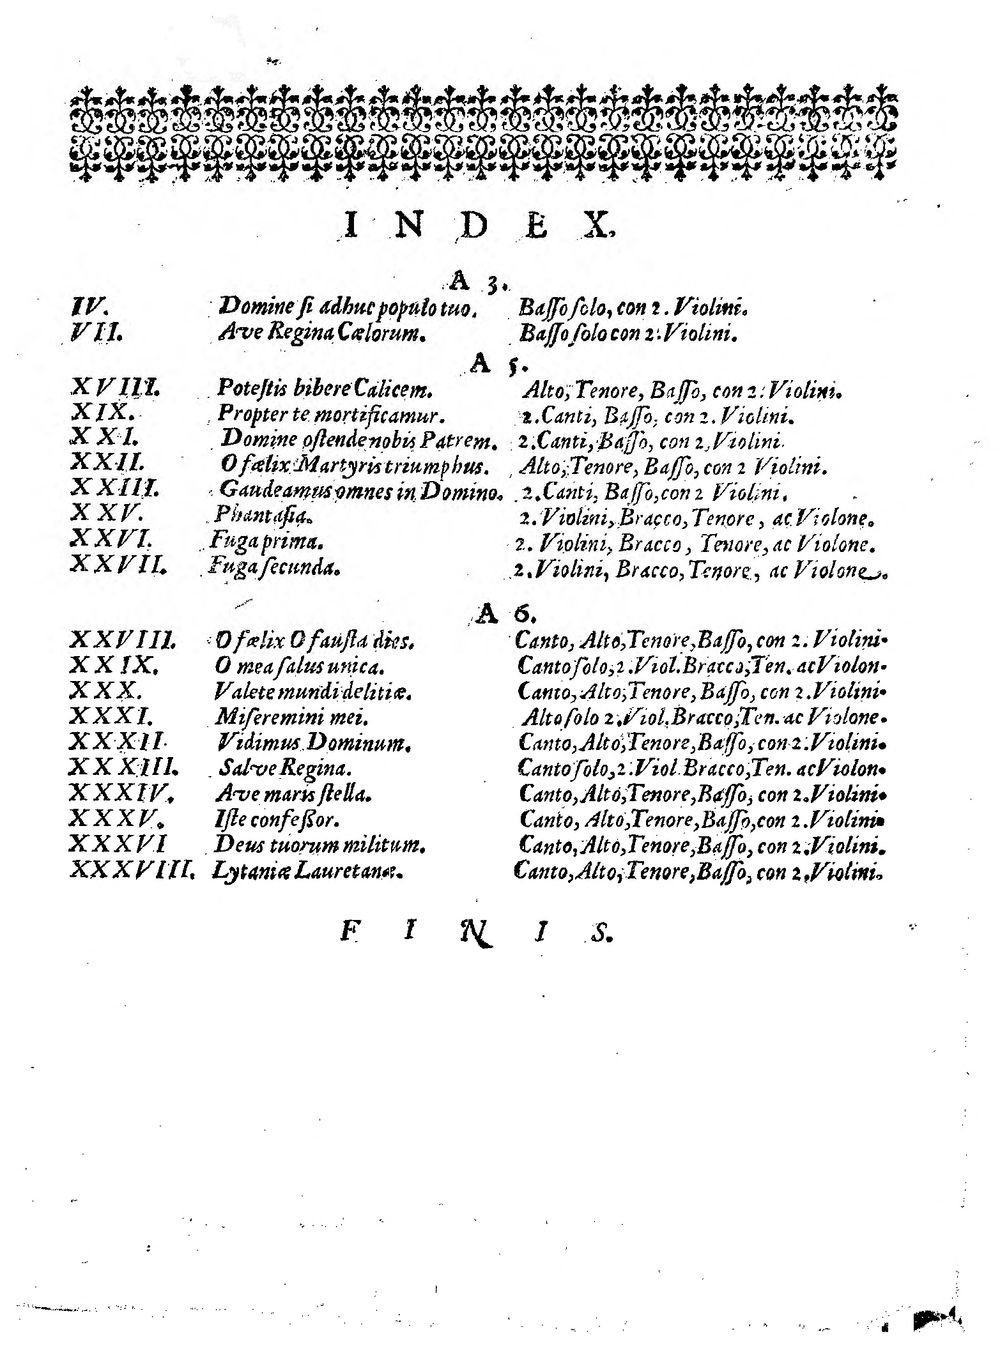 INDEX.
A 3.
IV. Domine ſi adhuc populo tuo. Baſſo ſolo, con 2. Violini.
VII. Ave Regina Cælorum. Baſſo ſolo con 2. Violini.
A 5.
XVIII. Poteſtis bibere Calicem. Alto, Tenore, Baſſo, con 2. Violini.
XIX. Propter te mortificamur. 2. Canti, Baſſo, con 2. Violini.
XXI. Domine oſtende nobis Patrem. 2. Canti, Baſſo, con 2. Violini.
XXII. O fælix Martyris triumphus. Alto, Tenore, Baſſo, con 2 Violini.
XXIII. Gaudeamus omnes in Domino. 2. Canti, Baſſo, con 2 Violini.
XXV. Phantaſia. 2. Violini, Bracco, Tenore, ac Violone.
XXVI. Fuga prima. 2. Violini, Bracco, Tenore, ac Violone.
XXVII. Fuga ſecunda. 2. Violini, Bracco, Tenore, ac Violone.
A 6.
XXVIII. O fælix O fauſta dies. Canto, Alto, Tenore, Baſſo, con 2. Violini.
XXIX. O mea ſalus unica. Canto ſolo, 2. Viol. Bracco, Ten. ac Violon.
XXX. Valete mundi delitiæ. Canto, Alto, Tenore, Baſſo, con 2. Violini.
XXXI. Miſeremini mei. Alto ſolo 2. Viol. Bracco, Ten. ac Violone.
XXXII. Vidimus Dominum. Canto, Alto, Tenore, Baſſo, con 2. Violini.
XXXIII. Salve Regina. Canto ſolo, 2. Viol. Bracco, Ten. ac Violon.
XXXIV. Ave maris ſtella. Canto, Alto, Tenore, Baſſo, con 2. Violini.
XXXV. Iſte confeßor. Canto, Alto, Tenore, Baſſo, con 2. Violini.
XXXVI Deus tuorum militum. Canto, Alto, Tenore, Baſſo, con 2. Violini.
XXXVIII. Lytaniæ Lauretanæ. Canto, Alto, Tenore, Baſſo, con 2. Violini.
FINIS.